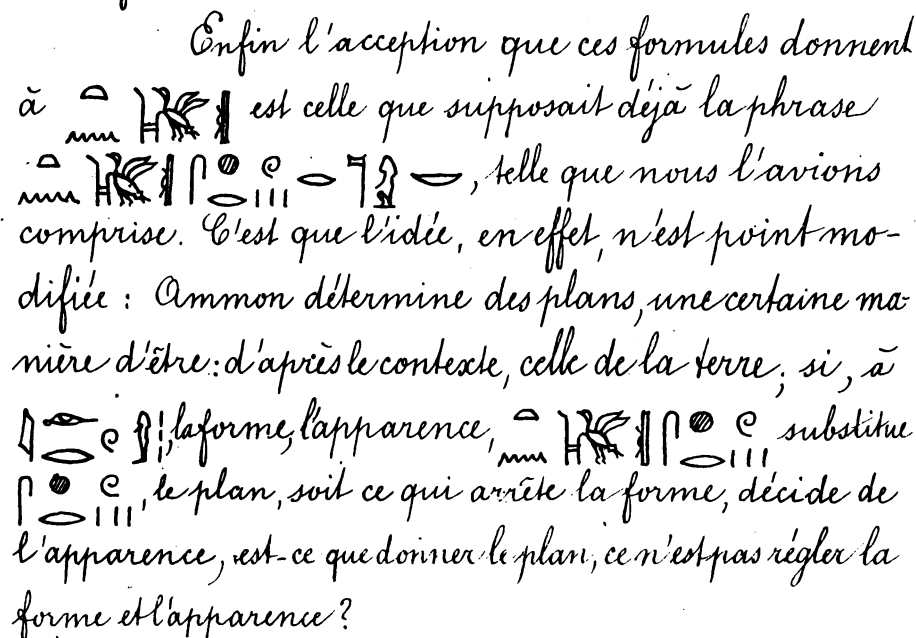 Enfin l'acception que ces formules donnent
à est celle que supposait déjà la phrase
, telle que nous l'avions
comprise. C'est que l'idée, en effet, n'est point mo-
difiée : Ammon détermine des plans, une certaine ma-
nière d'être : d'après le contexte, celle de la terre ; si, à
, la forme, l'apparence, substitue
, le plan, soit ce qui arrête la forme, décide de
l'apparence, est-ce que donner le plan, ce n'est pas régler la
forme et l'apparence ?